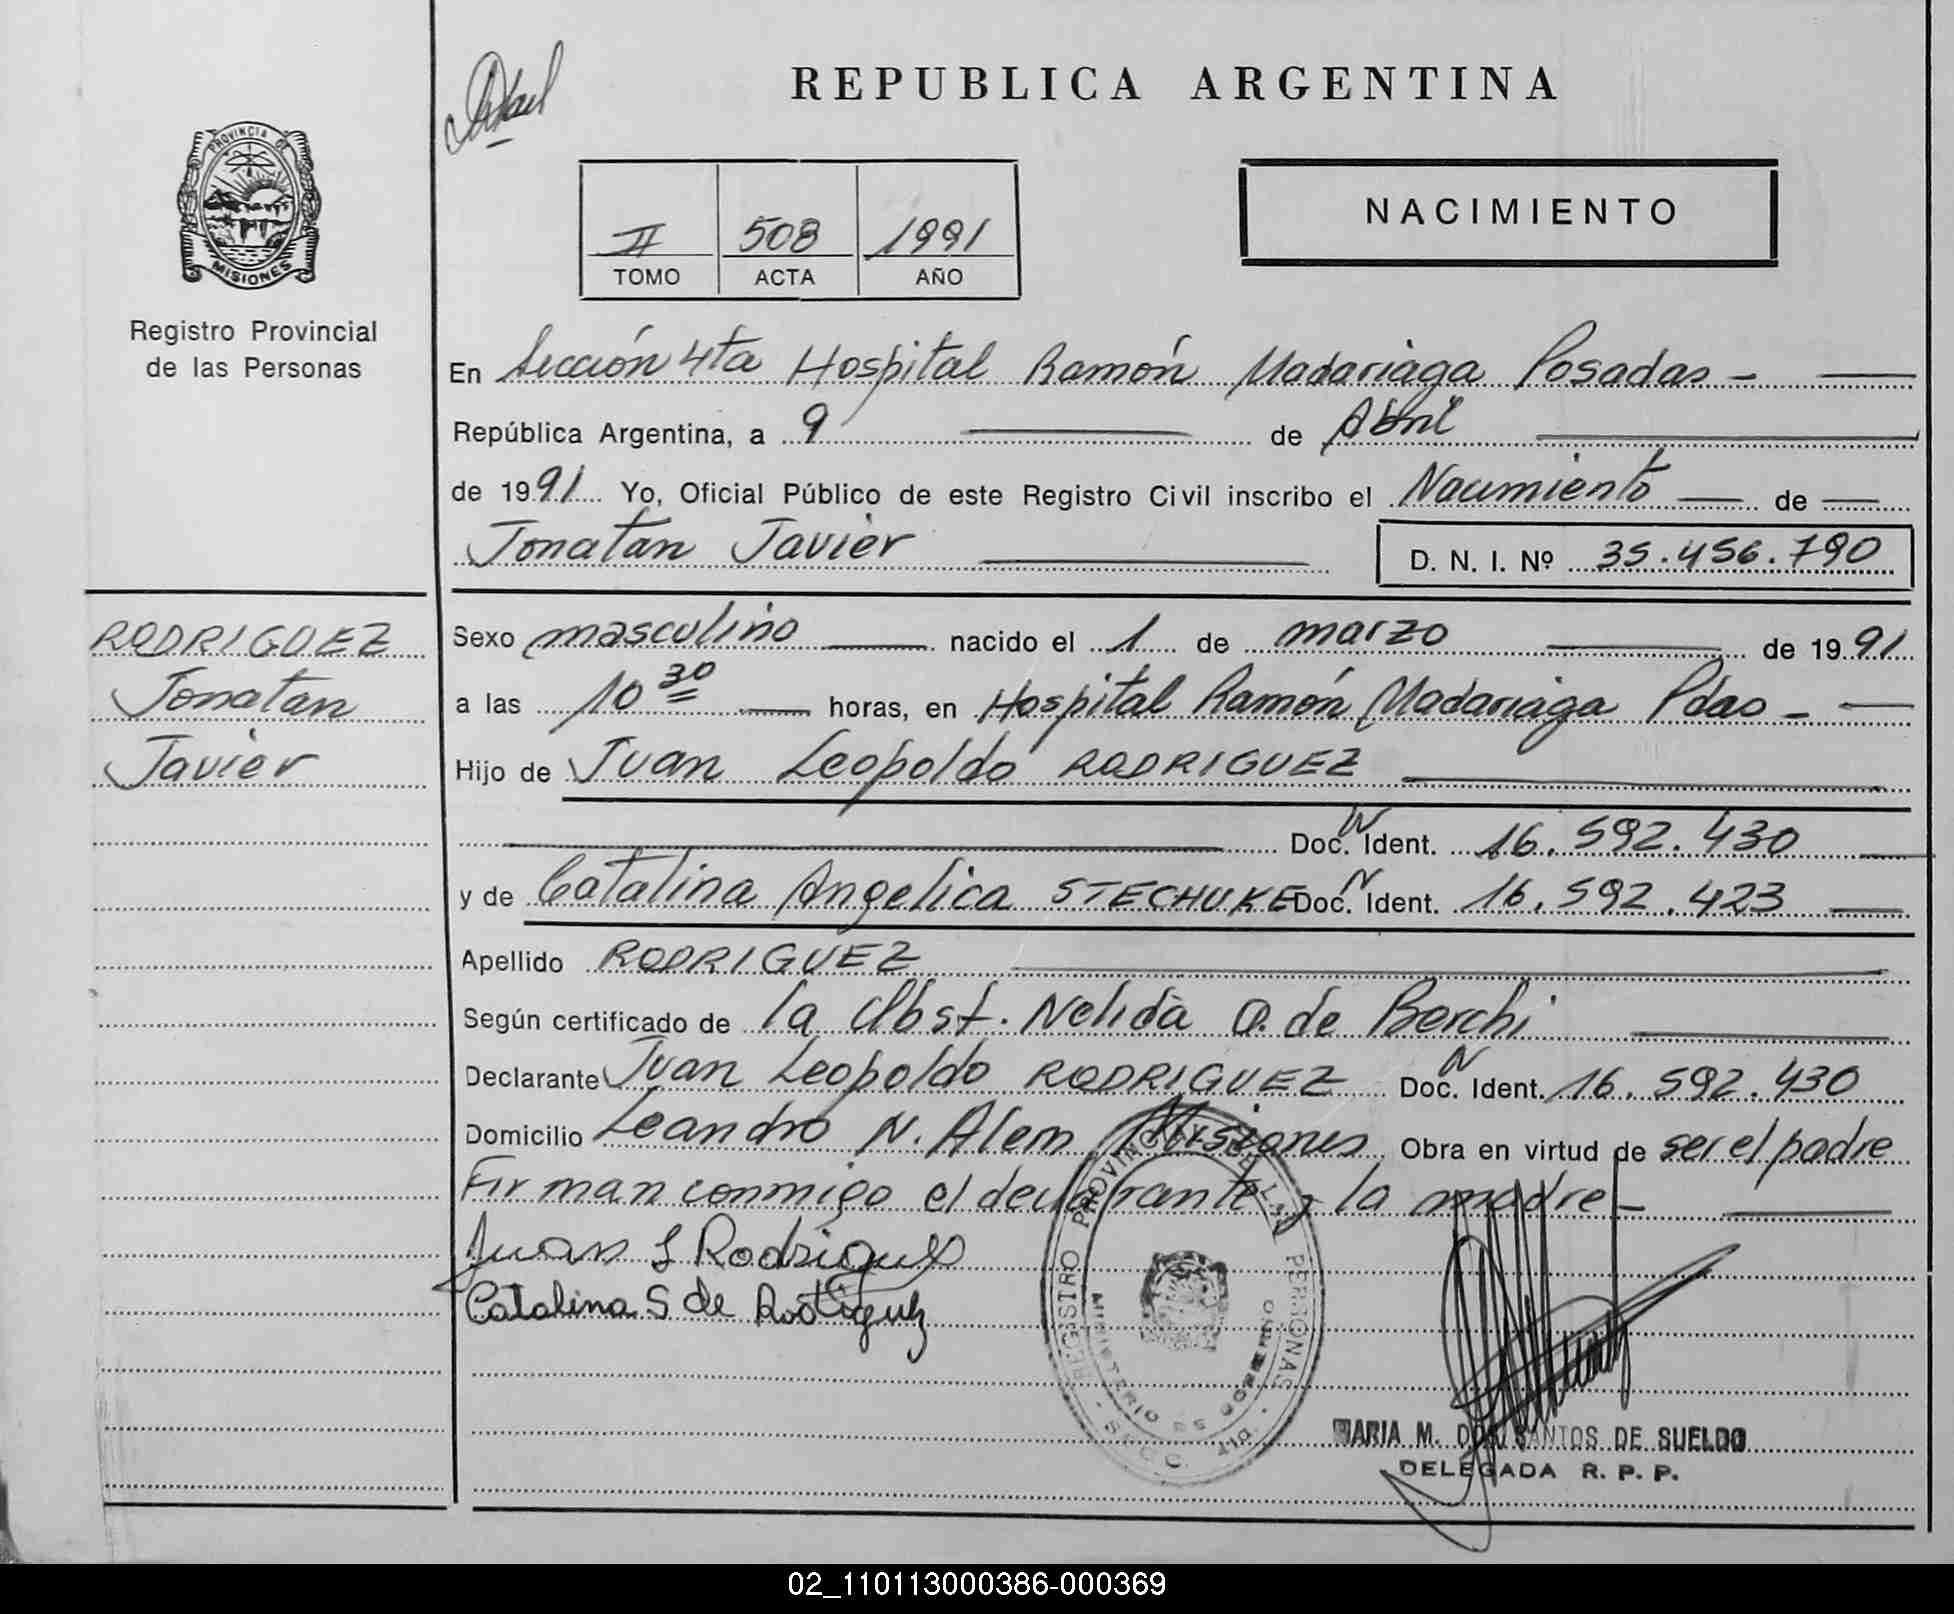 REPUBLICA ARGENTINA
PROVINCIA DE
MISIONES
Registro Provincial
de las Personas
II 508 1991
TOMO ACTA AÑO
NACIMIENTO
En Sección 4ta Hospital Ramón Madariaga Posadas -
República Argentina, a 9 de Abril
de 1991 Yo, Oficial Público de este Registro Civil inscribo el Nacimiento de
Jonatan Javier D. N. I. Nº 35.456.790
RODRIGUEZ
Jonatan
Javier
Sexo masculino nacido el 1 de marzo de 1991
a las 10 30 horas, en Hospital Ramón Madariaga Pdas -
Hijo de Juan Leopoldo RODRIGUEZ
Doc. N Ident. 16.592.430
y de Catalina Angelica STECHUKE Doc. N Ident. 16.592.423
Apellido RODRIGUEZ
Según certificado de la Obst. Nelida O. de Berchi
Declarante Juan Leopoldo RODRIGUEZ Doc. N Ident. 16.592.430
Domicilio Leandro N. Alem Misiones Obra en virtud de ser el padre
Firman conmigo el declarante y la madre -
Juan L Rodriguez
Catalina S de Rodriguez
REGISTRO PROVINCIAL DE LAS PERSONAS
MINISTERIO DE GOBIERNO
MARIA M. DOS SANTOS DE SUELDO
DELEGADA R. P. P.
02_110113000386-000369